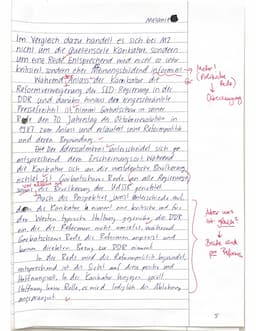 Melanie
Im Vergleich dazu handelt es sich bei M2
nicht um die Quellensorte Karikatur, sondern
um eine Rede. Entsprechend wird nicht so sehr
kritisiert, sondern eher Meinungsbildend informiert.
Mehr!
(Politische
Rede)
Überzeugung
Während Anlass der Karikatur die
Reformverweigerung der SED-Regierung in der
DDR und darüber hinaus der eingeschränkte
Presse ist, nimmt Gorbatschow in seiner
Rede den 70. Jahrestag der Oktoberrevolution in
1987 zum Anlass und erläutert seine Reformpolitik
und deren Begründung.
Der Adressatenkreis unterscheidet sich
entsprechend dem Erscheinungsort. Während
die Karikatur sich an die westdeutsche Bevölkerung
richtet, ist Gorbatschows Rede an alle
Bevölkerung der UdSSR gerichtet.
Auch die Perspektive
die Karikatur nimmt eine kritische und für
den Westen typische Haltung gegenüber der DDR
an, die die Reformen nicht umsetzt, während
Gorbatschows Rede die Reformen anpreist und
keinen direkten Bezug zur DDR nimmt.
Aber was
ist gleich?
Beide sind
pro Reform
In der Rede wird die Reformpolitik
entsprechend ist die Sicht auf diese positiv und
Hoffnungsvoll. In der Karikatur hingegen spielt
Hoffnung keine Rolle, es wird lediglich die Ablehnung
angeprangert.
5